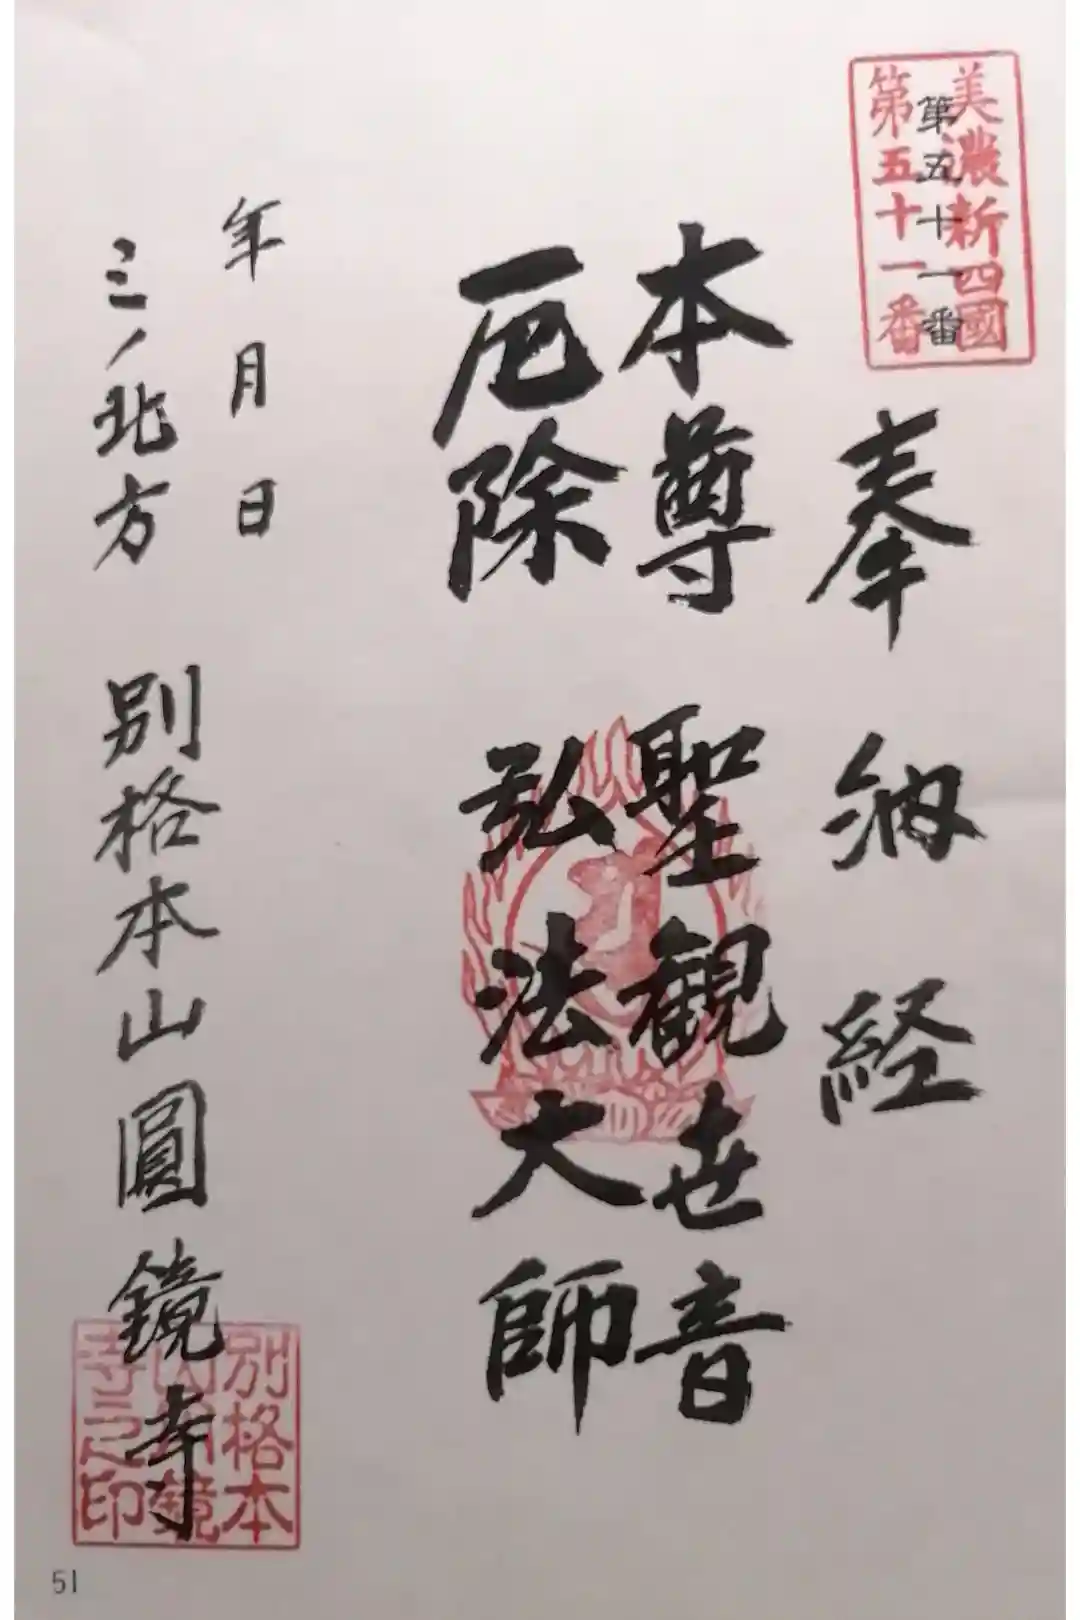 美濃新四國
第五十一番
第五十一番
奉納経
本尊 聖観世音
厄除 弘法大師
年月日
三ノ北方 別格本山圓鏡寺
別格本
鏡
寺之印
51